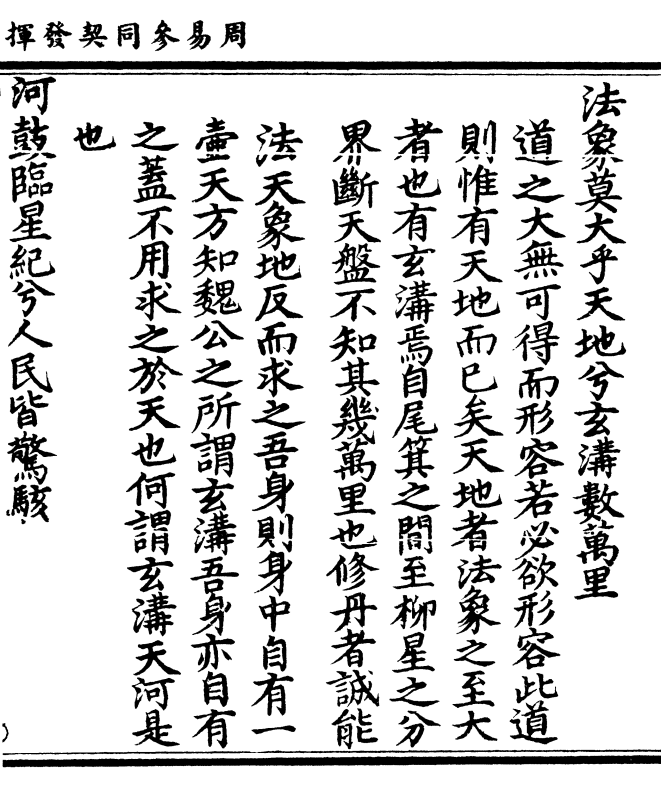 周易參同契發揮
法象莫大乎天地兮玄溝數萬里
道之大無可得而形容若必欲形容此道
則惟有天地而已矣天地者法象之至大
者也有玄溝焉自尾箕之間至柳星之分
界斷天盤不知其幾萬里也修丹者誠能
法天象地反而求之吾身則身中自有一
壷天方知魏公之所謂玄溝吾身亦自有
之蓋不用求之於天也何謂玄溝天河是
也
河鼓臨星紀兮人民皆驚駭